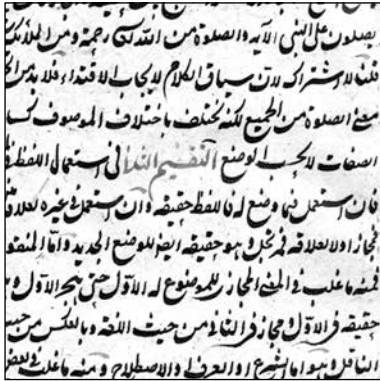 يصلون على النبى الآية والصلوة من الله تعالى رحمة ومن الملائكة
قلنا لا اشتراك لان سياق الكلام لايجاب الاقتداء فلا بد من
معنى الصلوة من الجميع لكنه يختلف باختلاف الموصوف كسا
الصفات لا بحسب الوضع التقسيم الثانى فى استعمال اللفظ ف
فان استعمل فيما وضع له فاللفظ حقيقة وان استعمل فى غيره لعلاقة
فمجاز اولا لعلاقة فمرتجل وهو حقيقة ايضا للوضع الجديد واما المنقو
فمنه ما غلب فى المعنى المجازى للموضوع له الاول حتى هجر الاول و
حقيقة فى الاول مجاز فى الثانى من حيث اللغة وبالعكس من حيث
الناقل وهو اما الشرع او العرف او الاصطلاح ومنه ما غلب فى بعض